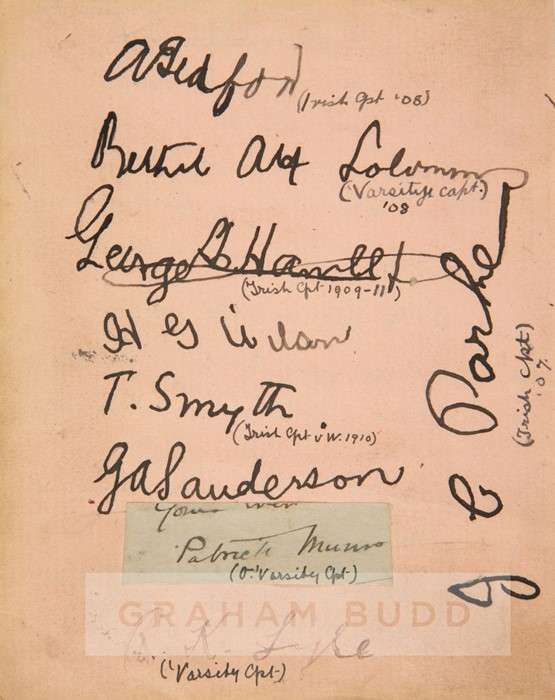 A Tedford
(Irish Cpt '08)
Bethel Alex Solomons
('Varsity capt.)
'08
George Hamlet
(Irish Cpt 1909-11)
T. Smyth
(Irish Cpt v W. 1910)
G A Sanderson
Yours
Patrick Munro
(O. 'Varsity Cpt)
GRAHAM BUDD
K.
('Varsity Cpt)
J C Parke
(Irish Cpt)
'07